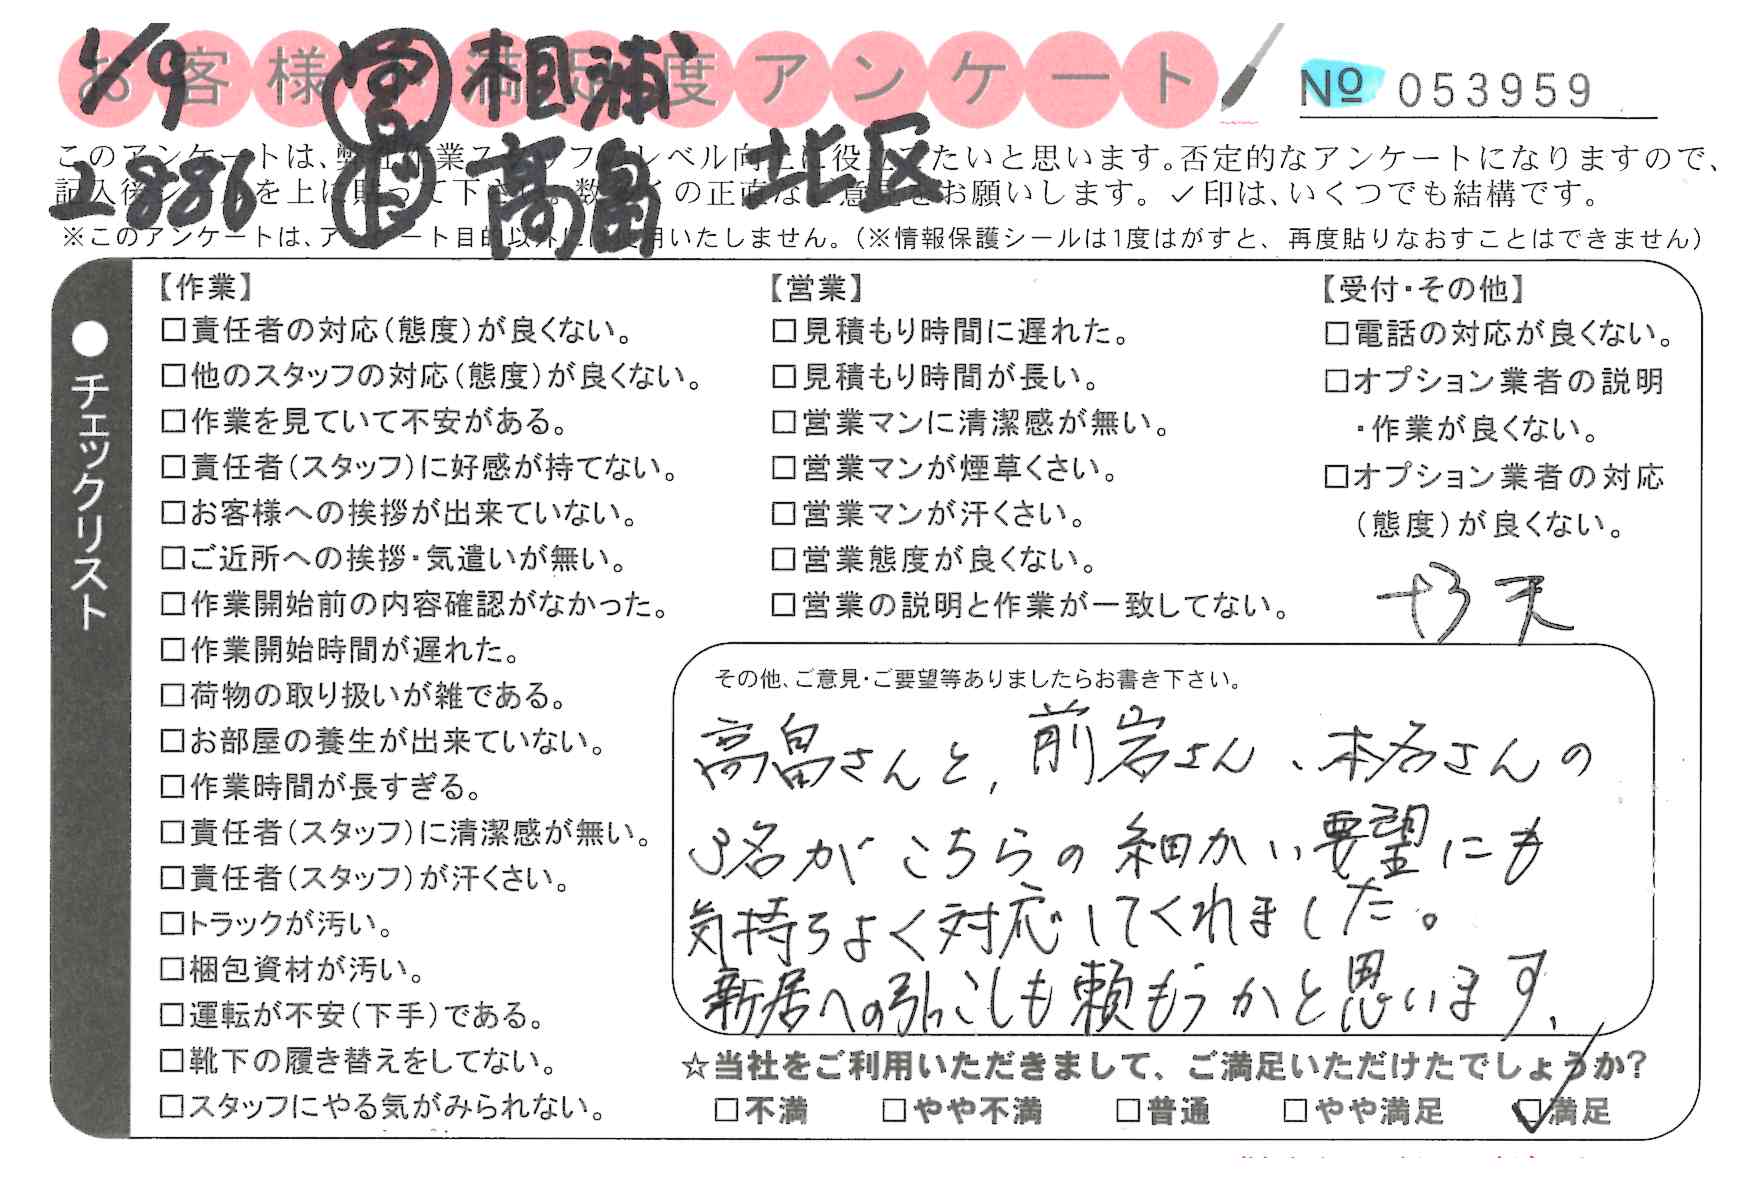 お客様満足度アンケート
No 053959
1/9 営 相浦
高畠 北区
このアンケートは、弊社作業スタッフのレベル向上に役立てたいと思います。否定的なアンケートになりますので、
記入後シールを上に貼って下さい。数多くの正直なご意見をお願いします。✓印は、いくつでも結構です。
※このアンケートは、アンケート目的以外には使用いたしません。(※情報保護シールは1度はがすと、再度貼りなおすことはできません)
●チェックリスト
【作業】
□責任者の対応(態度)が良くない。
□他のスタッフの対応(態度)が良くない。
□作業を見ていて不安がある。
□責任者(スタッフ)に好感が持てない。
□お客様への挨拶が出来ていない。
□ご近所への挨拶・気遣いが無い。
□作業開始前の内容確認がなかった。
□作業開始時間が遅れた。
□荷物の取り扱いが雑である。
□お部屋の養生が出来ていない。
□作業時間が長すぎる。
□責任者(スタッフ)に清潔感が無い。
□責任者(スタッフ)が汗くさい。
□トラックが汚い。
□梱包資材が汚い。
□運転が不安(下手)である。
□靴下の履き替えをしてない。
□スタッフにやる気がみられない。
【営業】
□見積もり時間に遅れた。
□見積もり時間が長い。
□営業マンに清潔感が無い。
□営業マンが煙草くさい。
□営業マンが汗くさい。
□営業態度が良くない。
□営業の説明と作業が一致してない。
【受付・その他】
□電話の対応が良くない。
□オプション業者の説明
・作業が良くない。
□オプション業者の対応
(態度)が良くない。
その他、ご意見・ご要望等ありましたらお書き下さい。
高畠さんと、前岩さん、本名さんの
3名がこちらの細かい要望にも
気持ちよく対応してくれました。
新居への引こしも頼もうかと思います。
☆当社をご利用いただきまして、ご満足いただけたでしょうか?
□不満 □やや不満 □普通 □やや満足 ☑満足